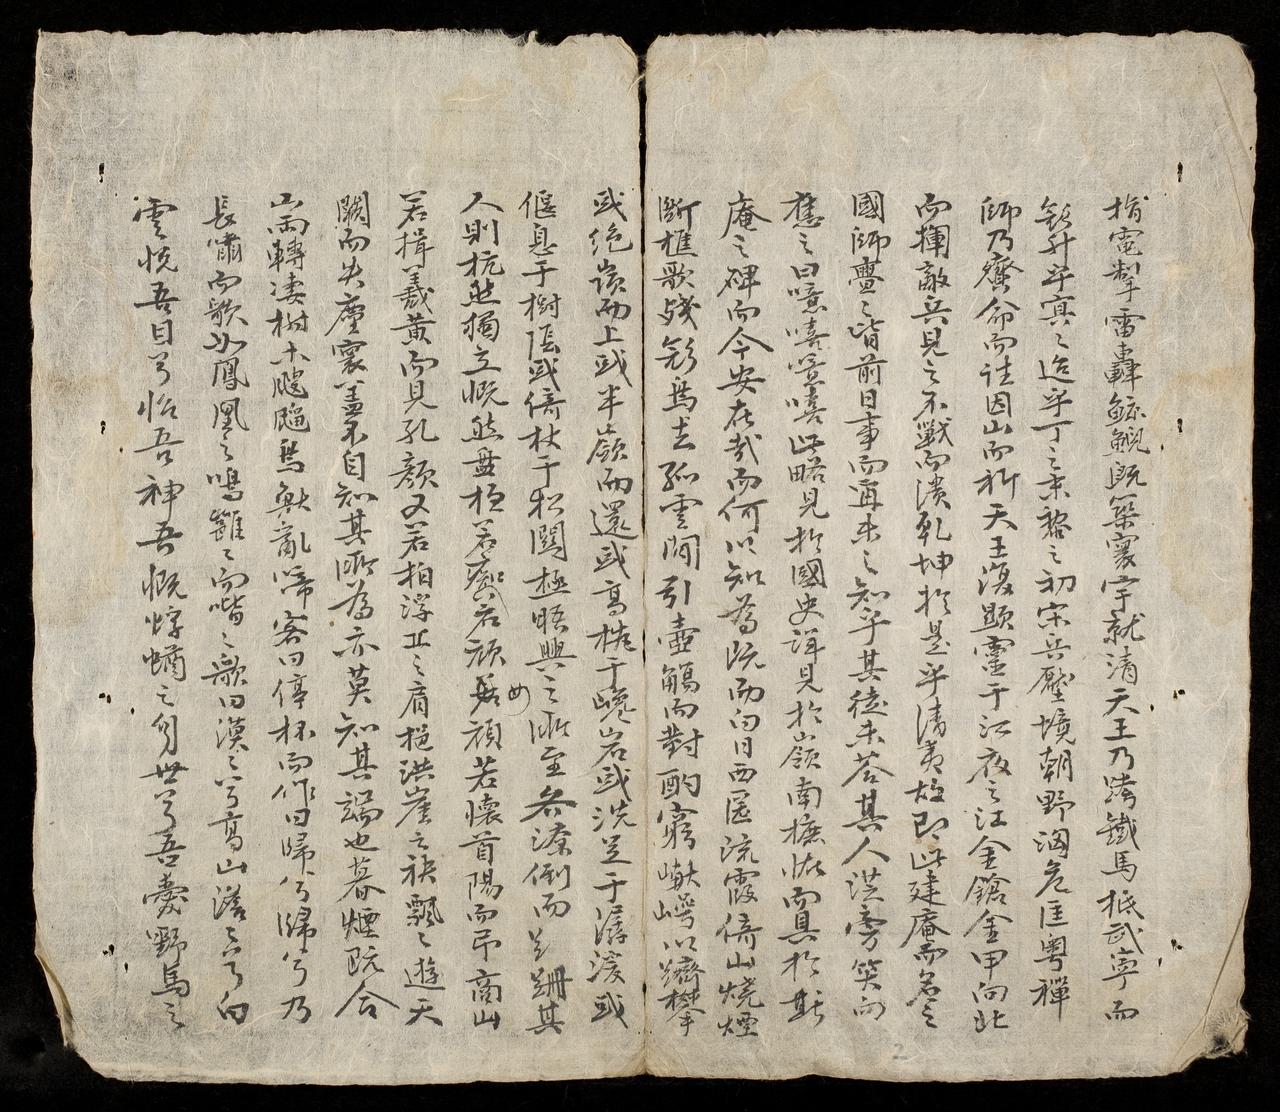 指電掣雷轟鯨鯢既築寰宇就清天王乃跨鐵馬抵武寧而
欻升乎冥〻迨乎丁〻末黎〻初宋兵壓境朝野洶危匡粤禪
師乃齋命而詿因山而祈天王復顯靈于江夜〻汪金鎗金甲向北
而揮敵兵見之不戰而潰乾坤於是乎清夷故即此建庵而名之
國師亹〻皆前日事而再未之知乎其徒未荅其人洪旁笑而
應之曰噫嘻噫嘻此略見於國史詳見於嶺南摭怪而具於斯
庵之碑而今安在哉而何以知為既而白日西匿流霞倚山燒煙
斷樵歌殘欻焉去孤雲間引壺觴而對酌窮巘崿以躋攀
或絶嶺而上或半嶺而還或高枕于巉岩或洗足于潺湲或
偃息于樹陰或倚杖于松關極晤興之所至各潦倒而𣃁跚其
人則杭然獨立慨然盤桓若嶽君頎𩠐頑若懷首陽而吊商山
若揖羲黄而見孔顏又若拍浮丘之肩挹洪崖之袂飄〻遊天
關而失塵寰盖不自知其所為亦莫知其端也暮煙既合
山雨轉凄樹木颼飀鳥獸亂啼客曰停杯而作曰歸兮歸兮乃
長嘯而歌如鳳凰之鳴雝〻而喈〻歌曰漠〻兮高山溶〻兮白
雲悦吾目兮怡吾神吾慨蜉蝣之身世兮吾愛野馬之